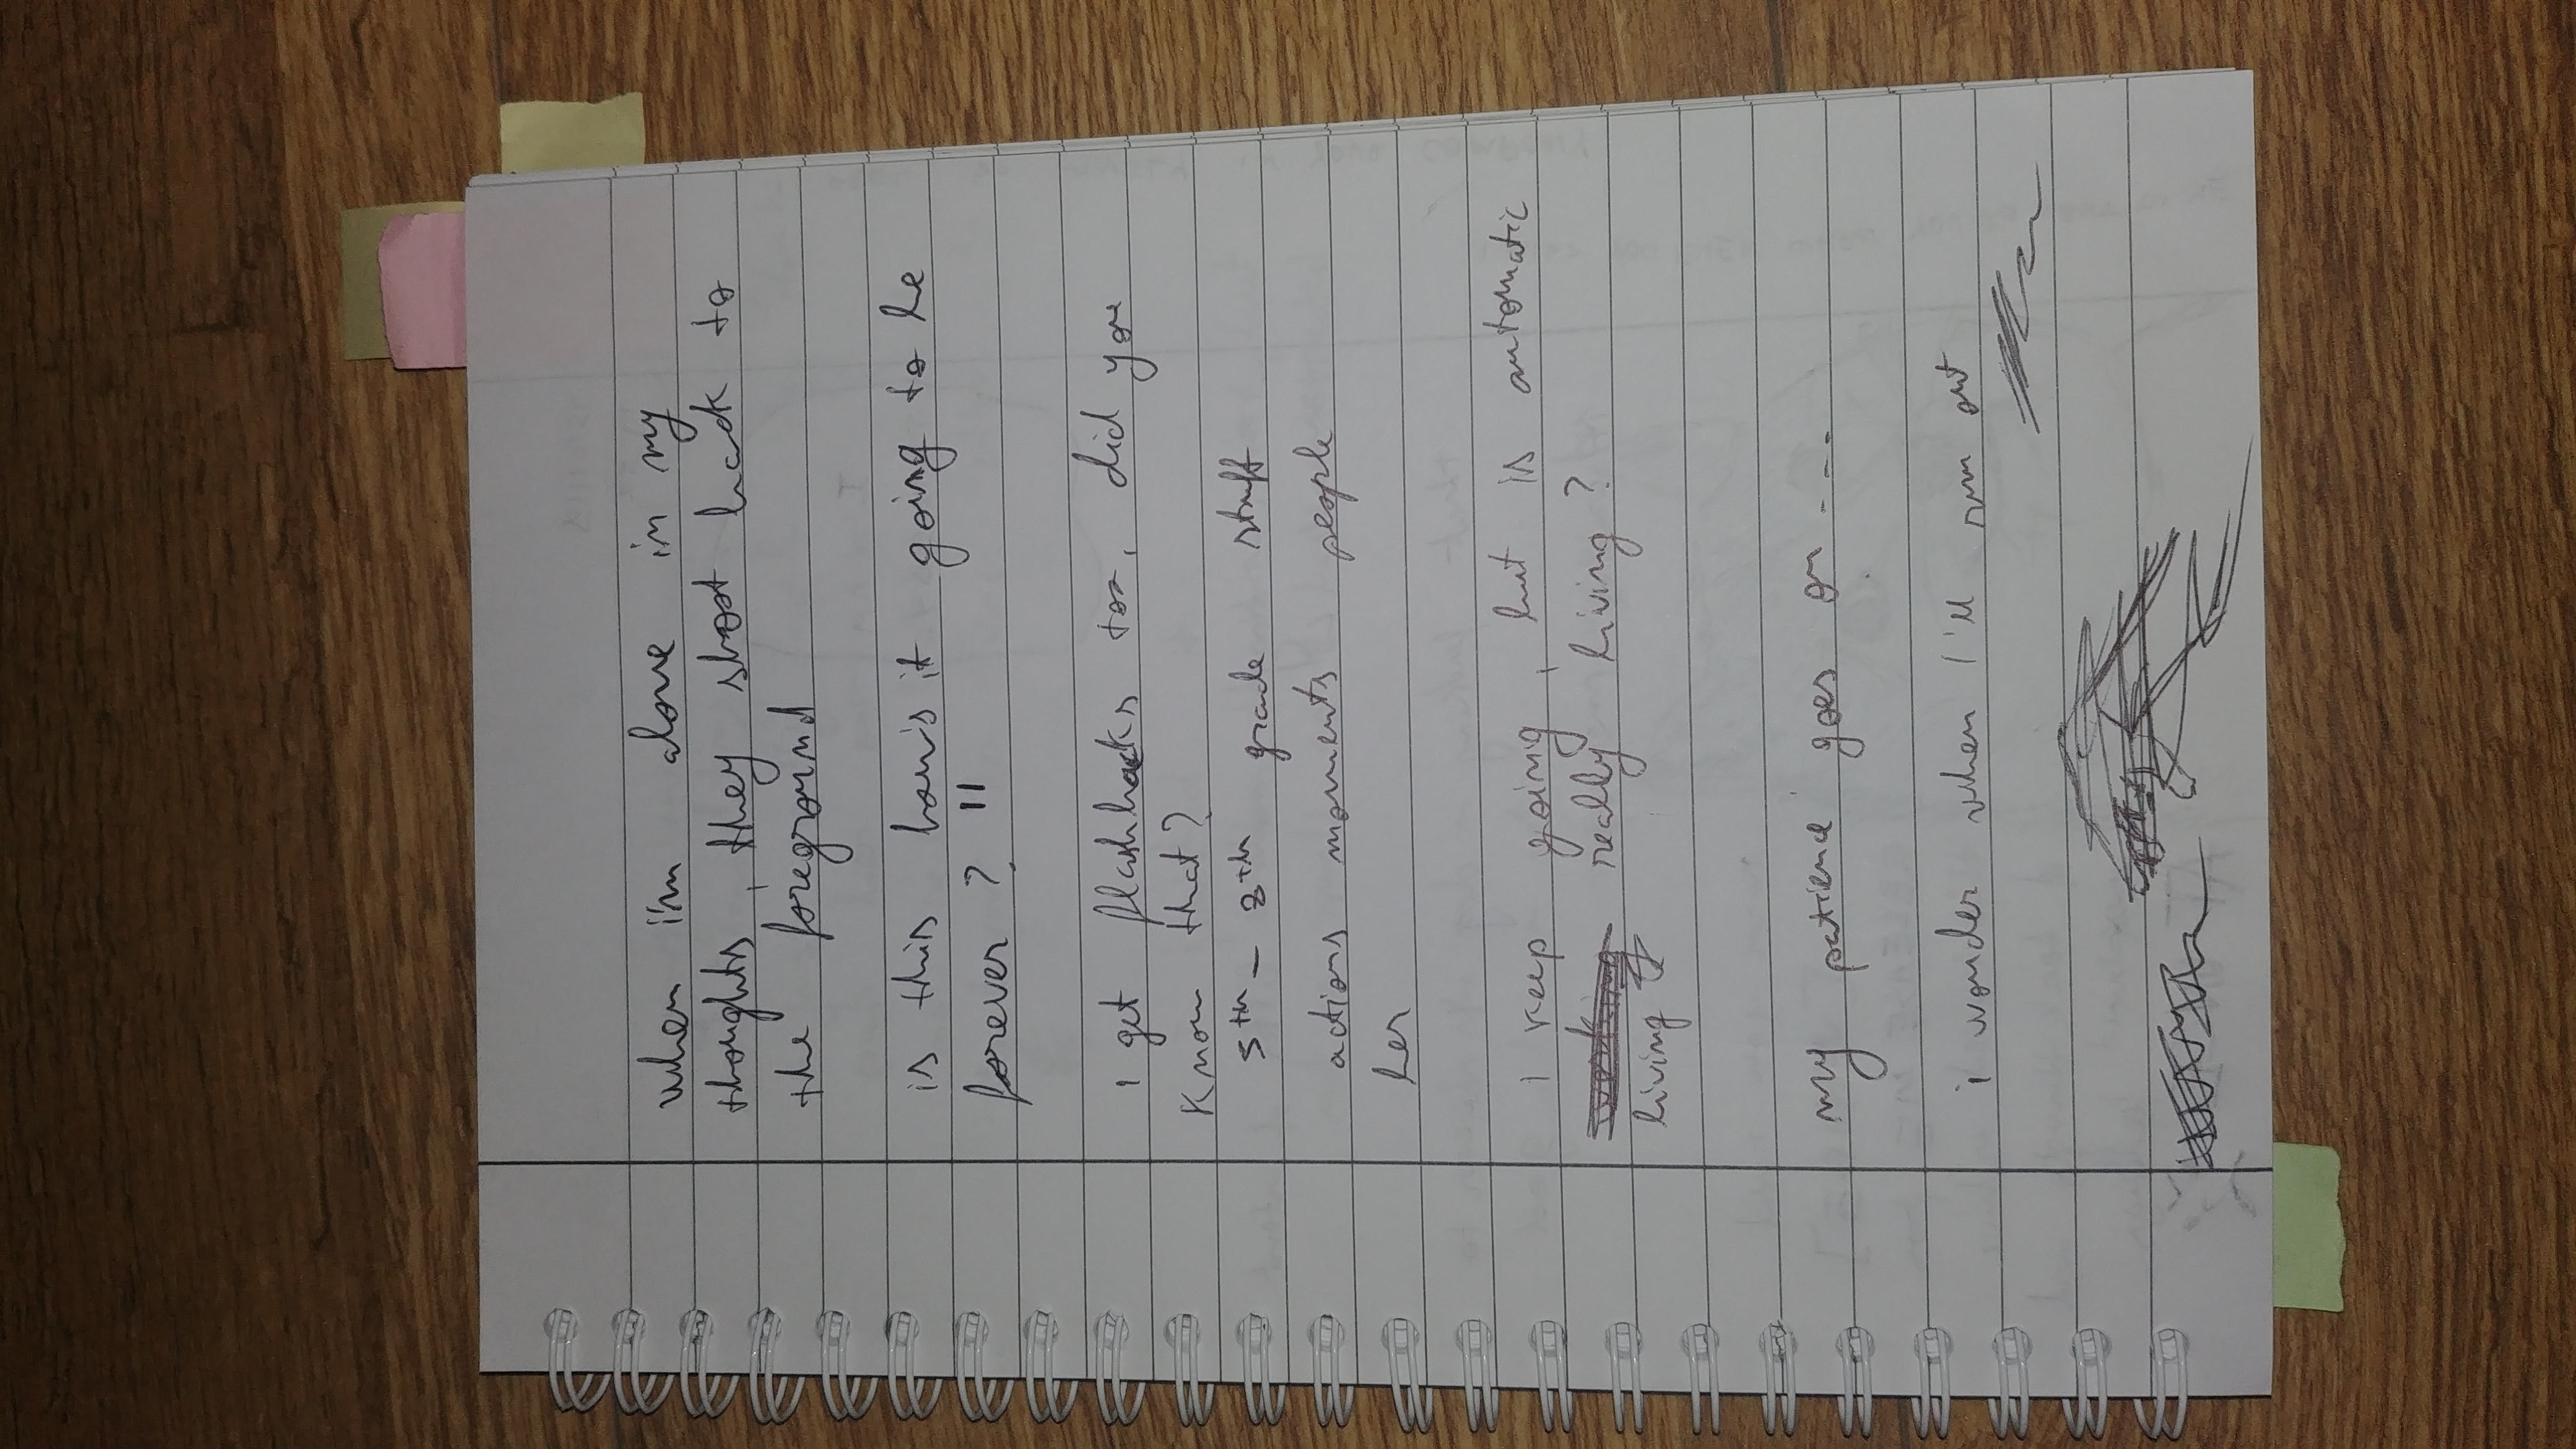 when i'm alone in my
thoughts, they shoot back to
the foreground
is this how's it going to be
forever? "
I get flashbacks too, did you
know that?
5th - 8th grade stuff
actions moments people
her
I keep going, but is automatic
working really living?
living
my patience goes on ----
i wonder when I'll run out